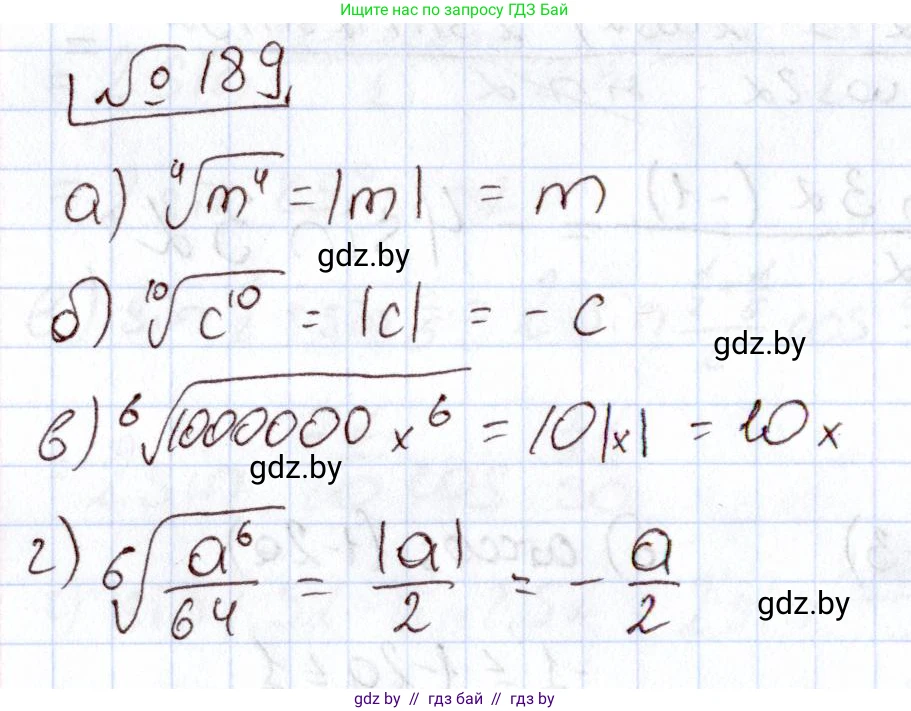 Ищите нас по запросу ГДЗ Бай
№ 189
а) ⁴√m⁴ = |m| = m
gdz.by
б) ¹⁰√c¹⁰ = |c| = - c
gdz.by
в) ⁶√1000000 x⁶ = 10|x| = 10 x
gdz.by
г) ⁶√(a⁶/64) = |a|/2 = - a/2
gdz.by
gdz.by // гдз бай // gdz.by